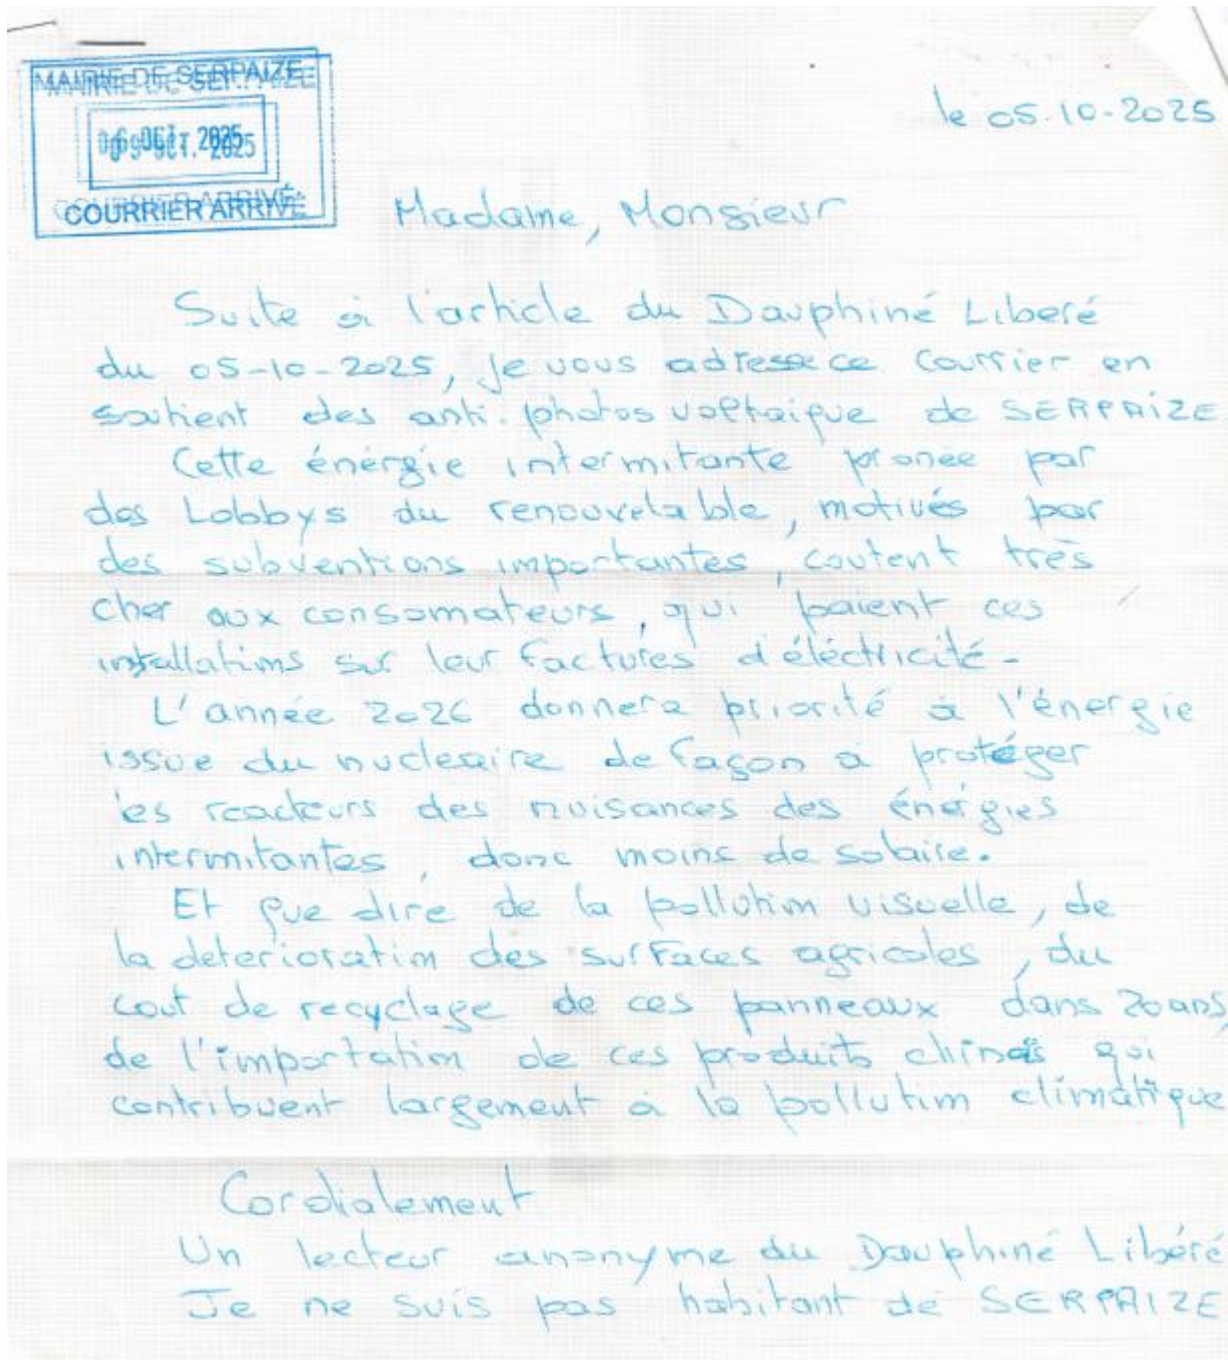 MAIRIE DE SERPAIZE
OCT. 2025
COURRIER ARRIVÉ
le 05.10-2025
Madame, Monsieur
Suite à l'article du Dauphiné Liberé
du 05-10-2025, je vous adresse ce courrier en
soutient des anti-photos voltaique de SERPAIZE
Cette énérgie intermitante pronee par
des Lobbys du renouvelable, motivés par
des subventions importantes, coutent très
cher aux consomateurs, qui paient ces
installations sur leur factures d'éléctricité-
L'année 2026 donnera priorité à l'énergie
issue du nucleaire de façon à protéger
les reacteurs des nuisances des énérgies
intermitantes, donc moins de solaire.
Et que dire de la pollution visuelle, de
la deterioration des surfaces agricoles, du
cout de recyclage de ces panneaux dans 20 ans,
de l'importation de ces produits chinois qui
contribuent largement à la pollution climatique
Cordialement
Un lecteur anonyme du Dauphiné Libéré
Je ne suis pas habitant de SERPAIZE